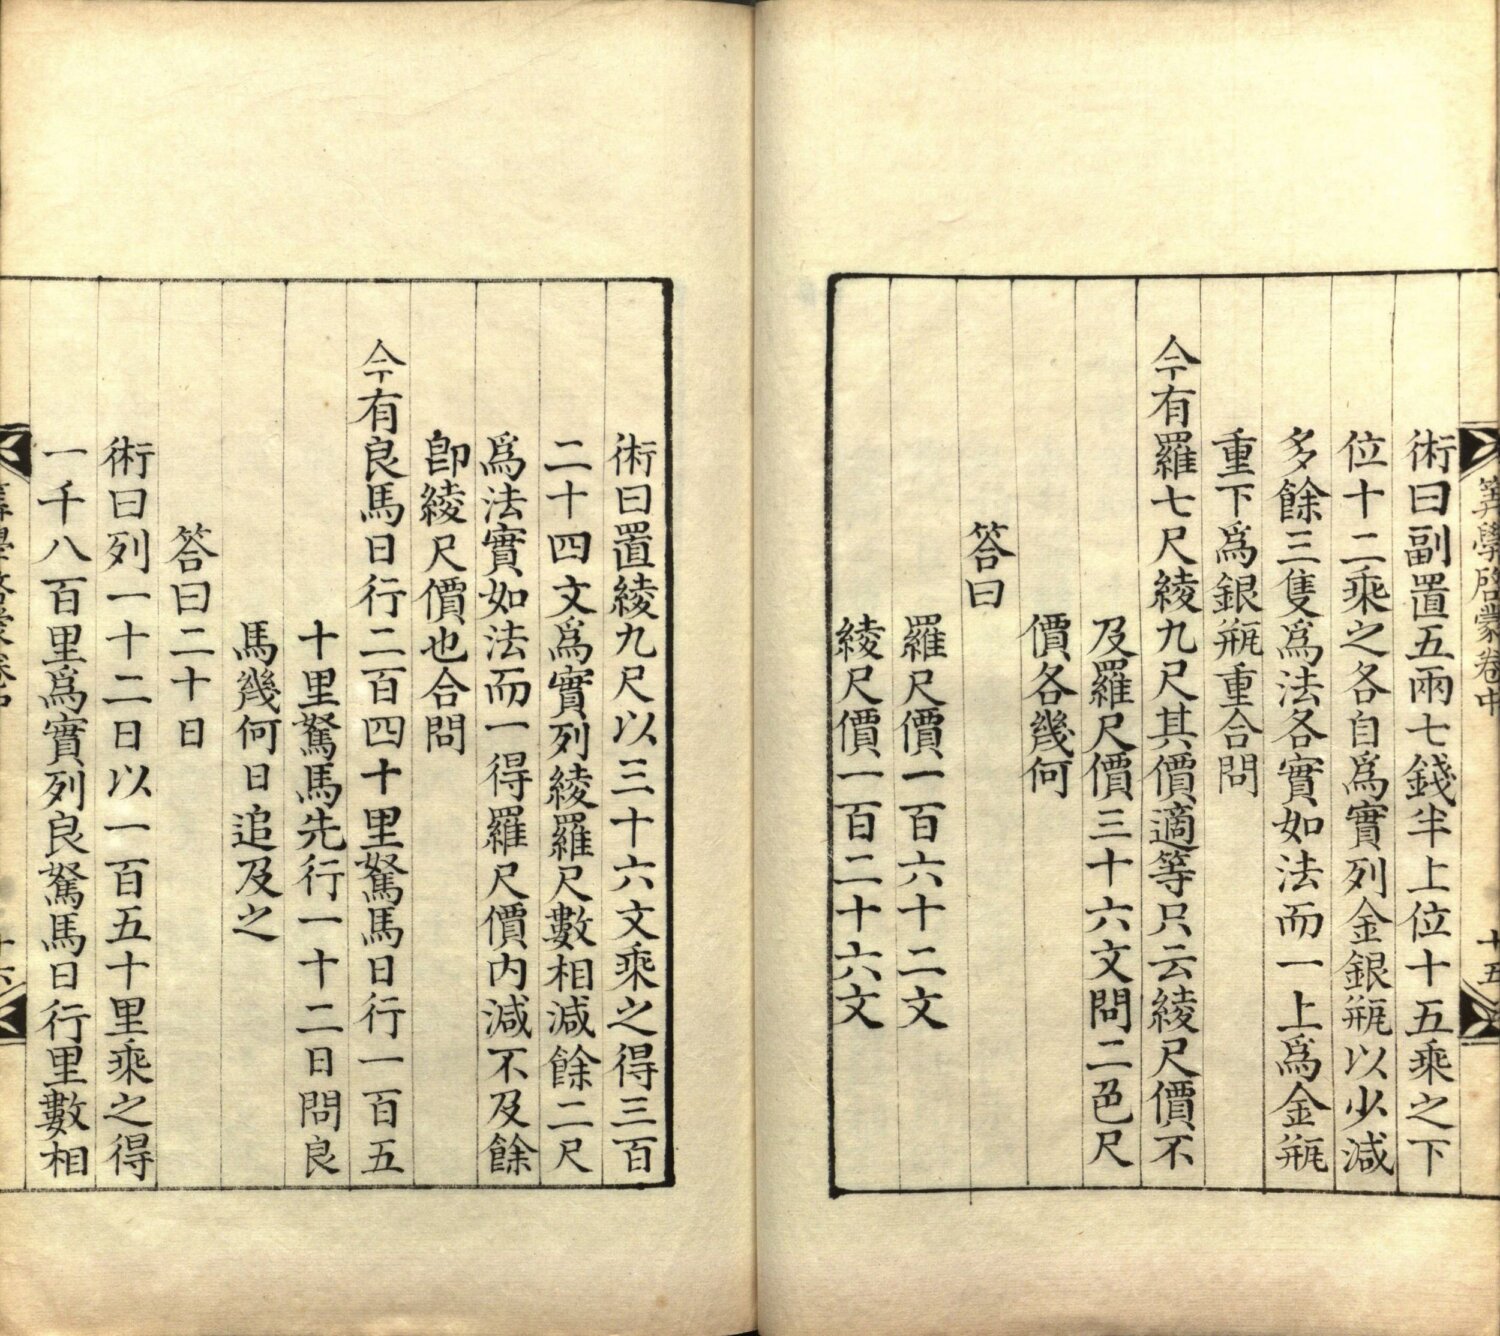 筭學啓蒙卷中
十五
術曰副置五兩七錢半上位十五乘之下
位十二乘之各自爲實列金銀甁以少減
多餘三隻爲法各實如法而一上爲金甁
重下爲銀甁重合問
今有羅七尺綾九尺其價適等只云綾尺價不
及羅尺價三十六文問二色尺
價各幾何
答曰
羅尺價一百六十二文
綾尺價一百二十六文
術曰置綾九尺以三十六文乘之得三百
二十四文爲實列綾羅尺數相減餘二尺
爲法實如法而一得羅尺價內減不及餘
卽綾尺價也合問
今有良馬日行二百四十里駑馬日行一百五
十里駑馬先行一十二日問良
馬幾何日追及之
答曰二十日
術曰列一十二日以一百五十里乘之得
一千八百里爲實列良駑馬日行里數相